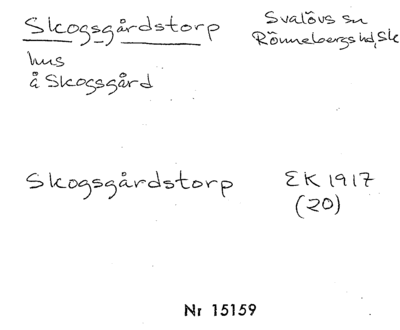 Skogsgårdstorp
Svalövs sn
Rönnebergs hd, Sk
hus
å Skogsgård
Skogsgårdstorp
EK 1917
(20)
Nr 15159